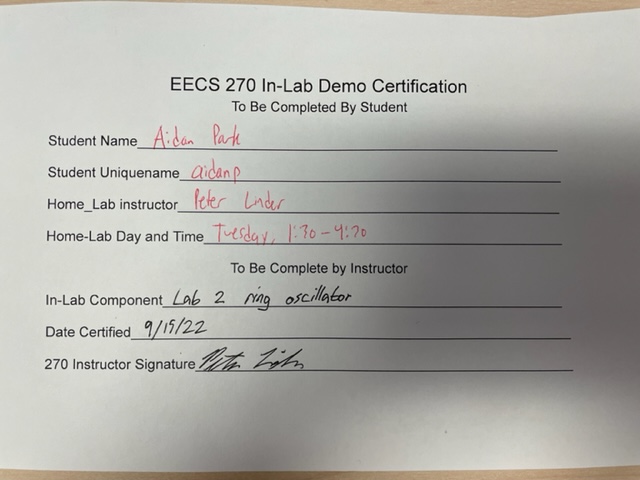 EECS 270 In-Lab Demo Certification
To Be Completed By Student
Student Name Aidan Park
Student Uniquename aidanp
Home_Lab instructor Peter Linder
Home-Lab Day and Time Tuesday, 1:30-4:30
To Be Complete by Instructor
In-Lab Component Lab 2 ring oscillator
Date Certified 9/15/22
270 Instructor Signature